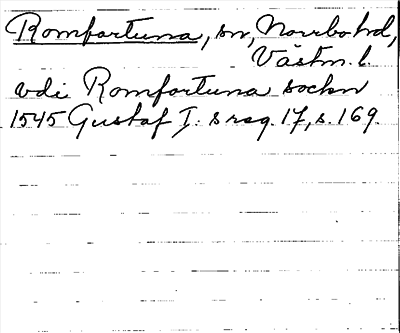 Romfartuna, sn, Norrbo hd,
Västm. l.
vdi Romfortuna sockn
1545 Gustaf I:s reg. 17, s. 169.